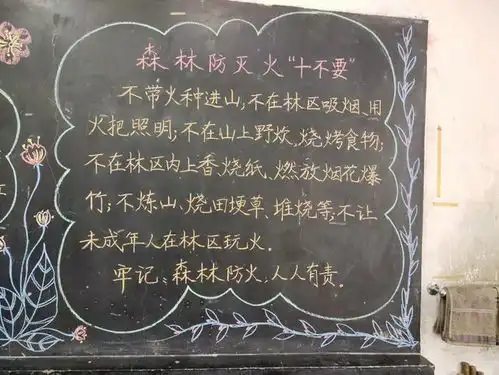 森林防灭火“十不要”
不带火种进山;不在林区吸烟、用
火把照明;不在山上野炊、烧烤食物;
不在林区内上香烧纸、燃放烟花爆
竹;不炼山、烧田埂草、堆烧等;不让
未成年人在林区玩火。
牢记:森林防火,人人有责。